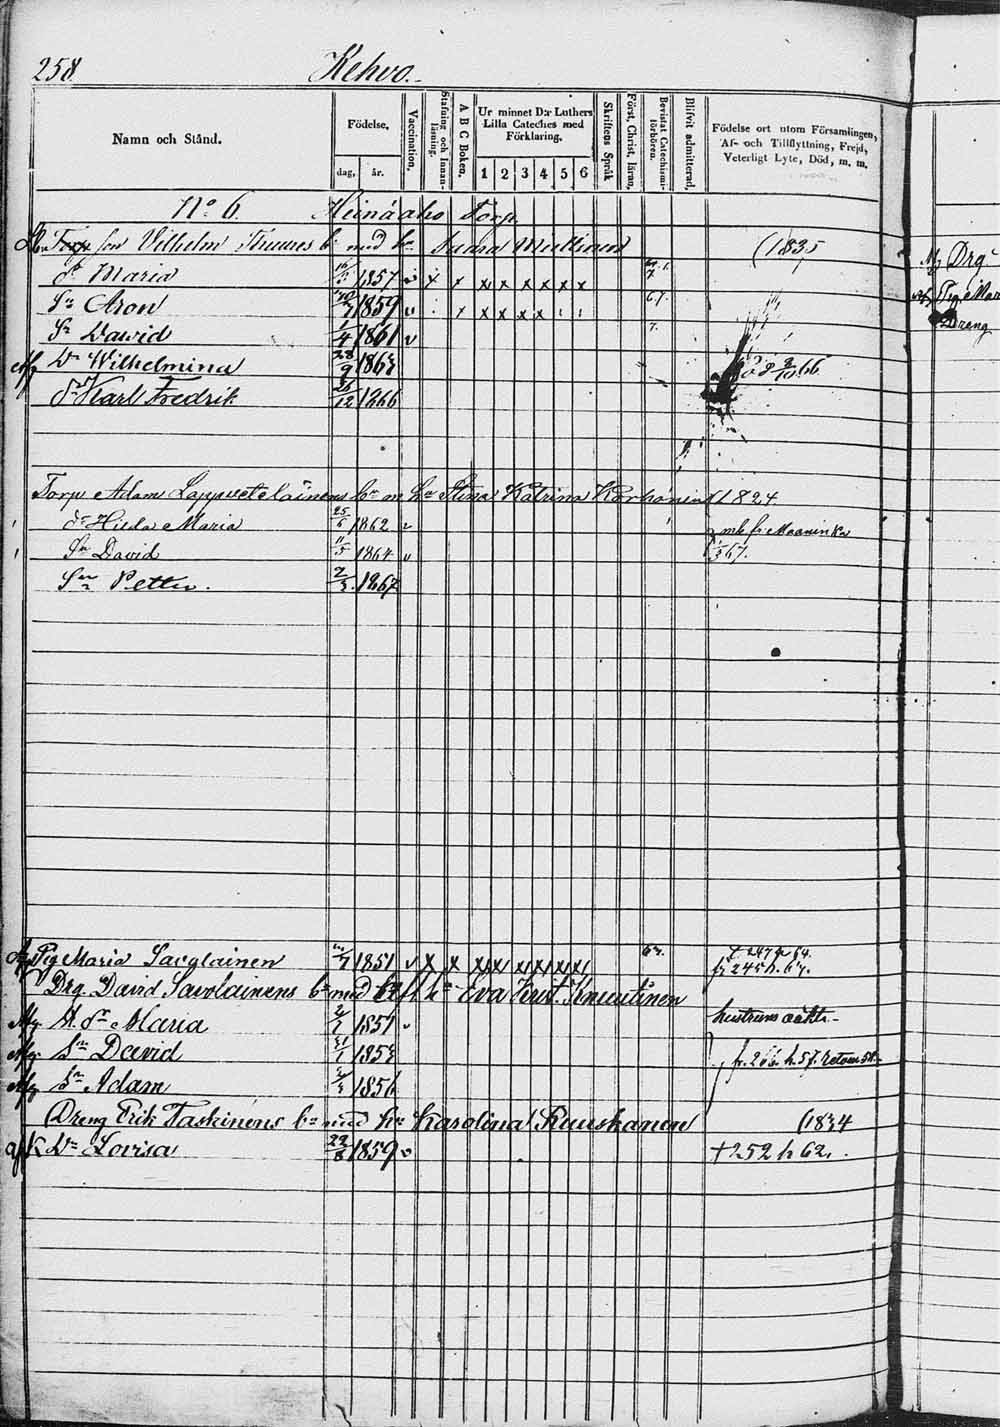 258. Kehvo.
Namn och Stånd.
Födelse,
dag, år.
Vaccination,
Stafning och Innanläsning.
A B C Boken.
Ur minnet D:r Luthers Lilla Cateches med Förklaring.
1 2 3 4 5 6
Skriftens Språk
Först. Christ. läran.
Bevistat Catechismiförhören.
Blifvit admitterad,
Födelse ort utom Församlingen, Af- och Tillflyttning, Frejd, Veterligt Lyte, Död, m. m.
No 6. Heinäaho Torp.
Torp son Vilhelm Thunes bn med hu (1835
dr Maria 1857 x x x x x x x x
Sn Aron 1859 v x x x x x 67.
Sn David 1/4 1861 v 7.
Dr Wilhelmina 28/9 1863 död 2/10 66
Sn Karl Fredrik 26/12 1866
Torp Adam Lappveteläinens bn m hu Stina Katrina Korhonen 1824
dr Hilda Maria 25/6 1862 v mb fr Maaninka
Sn David 11/5 1864 v 1/3 67.
Sn Petter. 2/3 1867
Pig Maria Savolainen 1851 v x x x x x x x x 67. 247 64.
fr 245 h. 67.
Drg. David Savolainens bn med hu Eva Krist. Knuutinen
dr Maria 1851 v hustruns oäkta
Sn David 31/1 1853 fr. 266 h. 57. retour 58.
Sn Adam 1856
Dreng Erik Taskinens bn med hu Karolina Ruuskanen (1834
Dr Lovisa 22/8 1859 v + 252 h 62.
Drg
Pig Mar
Dreng